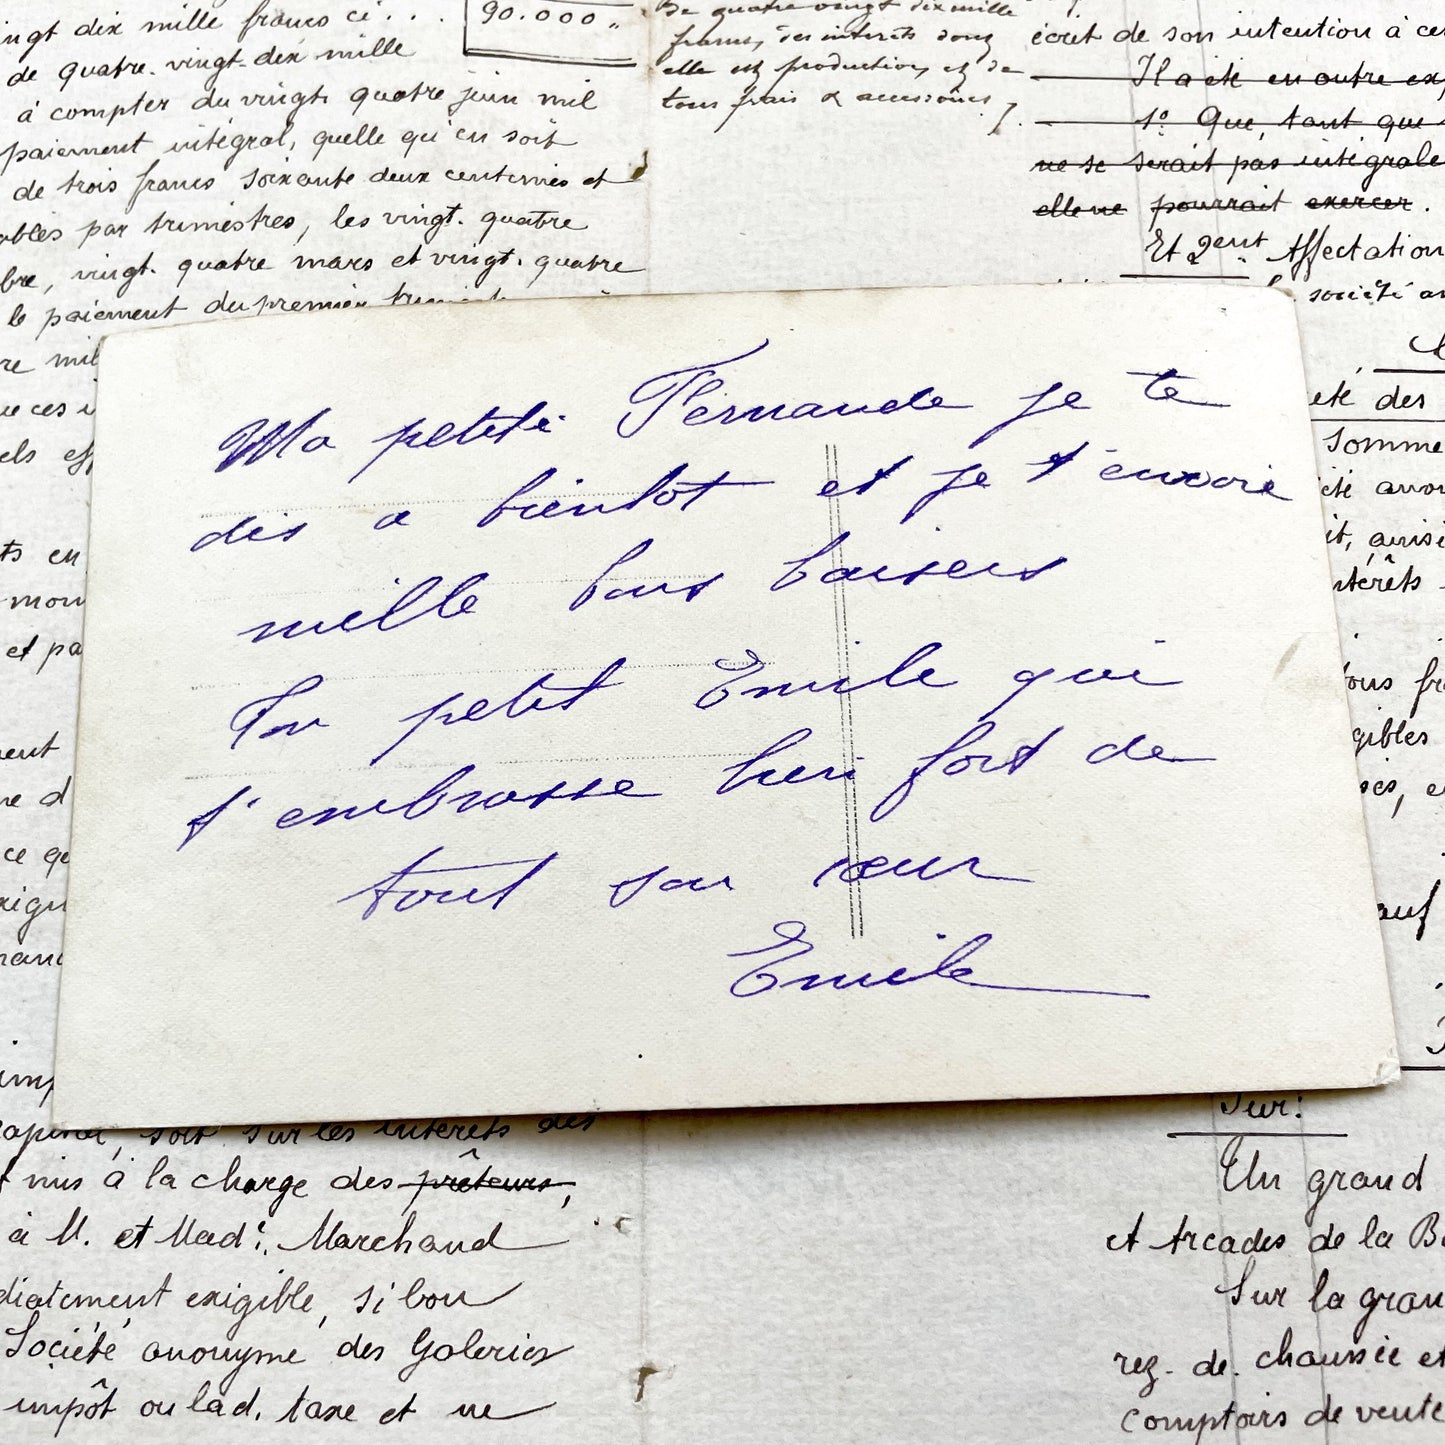 ingt dix mille francs ci . . .
90.000 „
de quatre. vingt-dix mille
à compter du vingt quatre juin mil
paiement intégral, quelle qu'en soit
de trois francs soixante deux centimes et
ables par trimestres, les vingt. quatre
bre, vingt. quatre mars et vingt. quatre
le paiement du premier
re mil
ue ces
els
ts en
mon
et pa
ce qu
De quatre vingt dix mille
francs, des interêts dont
elle est production, et de
tous frais & accessoires
écret de son intention à ce
Il a été en outre ex
1º Que, tant que
ne se serait pas intégrale
elle ne pourrait exercer.
Et 2ent Affectation
société an
été des
Somme
été anon
it, ainsi
ntérêts
tous fra
gibles
auf
Ma petite Fernande je te
dis a bientôt et je t'envoie
mille bons baisers
Ton petit Emile qui
t'embrasse bien fort de
tout son cœur
Emile
soit sur les intérêts des
mis à la charge des prêteurs,
à M. et Made. Marchand
diatement exigible, si bon
Société anonyme des Galeries
impôt ou lad. taxe et ne
Sur:
Un grand
et Arcades de la B
Sur la gran
rez. de. chaussée et
comptoirs de vente